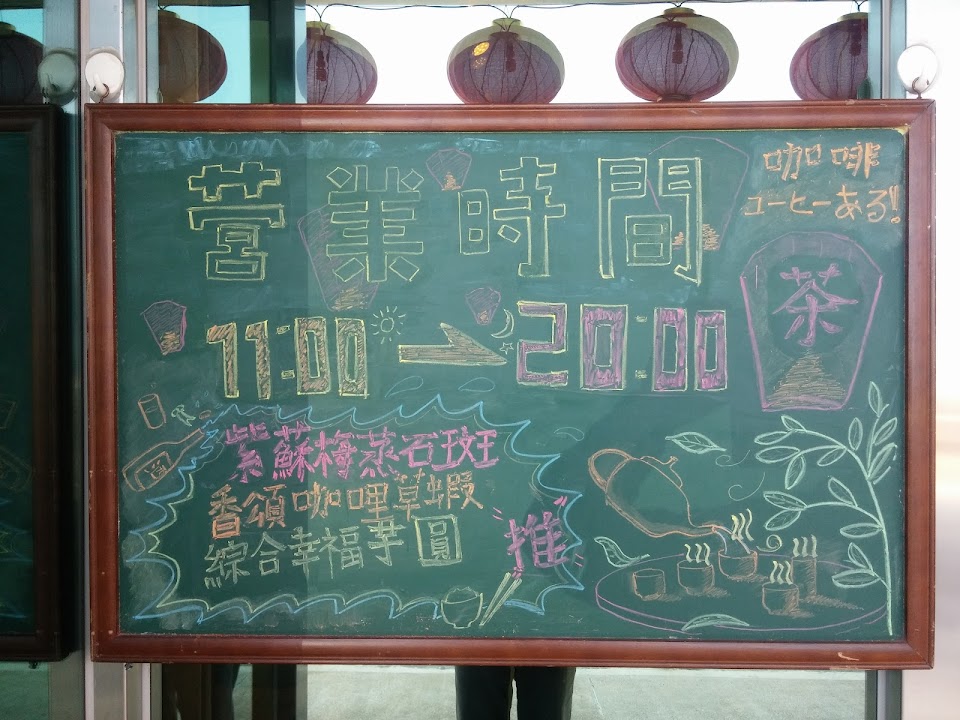 営業時間
咖啡
コーヒーある!
茶
11:00 → 20:00
紫蘇梅蒸石斑
香頌咖哩草蝦
綜合幸福芋圓
推